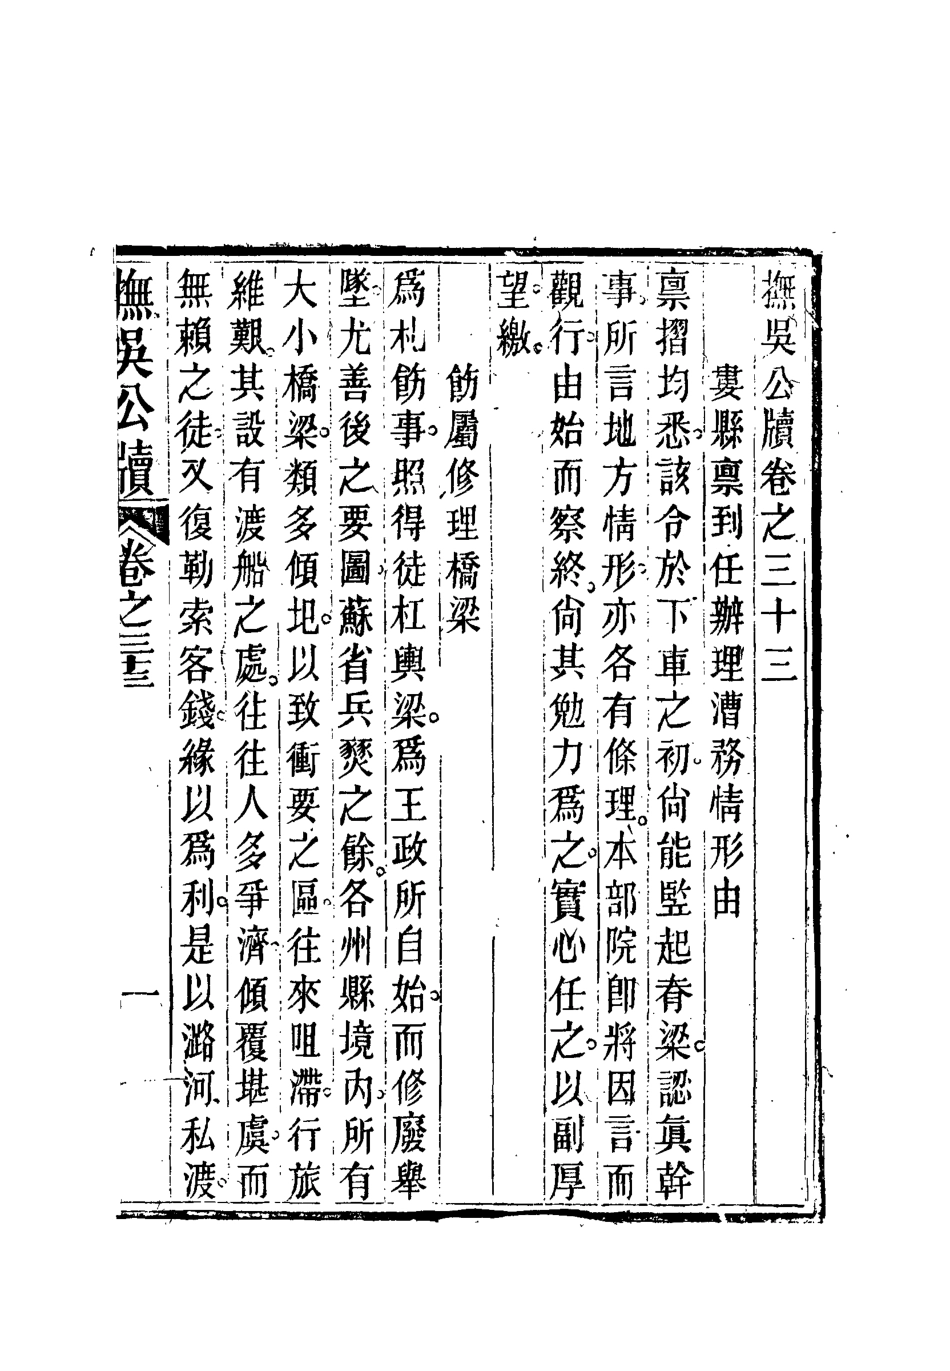 撫吳公牘卷之三十三
婁縣禀到任辦理漕務情形由
禀摺均悉。該令於下車之初。尙能監起脊梁。認眞幹
事。所言地方情形。亦各有條理。本部院卽將因言而
觀行。由始而察終。尙其勉力爲之。實心任之。以副厚
望。繳。
飭屬修理橋梁
爲札飭事。照得徒杠輿梁。爲王政所自始。而修廢舉
墜。尤善後之要圖。蘇省兵燹之餘。各州縣境內。所有
大小橋梁。類多傾圯。以致衝要之區。往來咀滯。行旅
維艱。其設有渡船之處。往往人多爭濟。傾覆堪虞。而
無賴之徒。又復勒索客錢。緣以爲利。是以潞河私渡。
撫吳公牘 卷之三十三 一